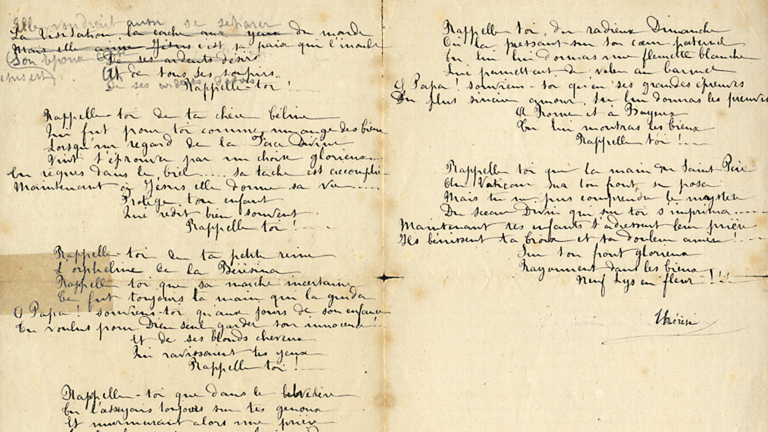 Elle voudrait aussi se séparer
La Visitation la cache aux yeux du monde
Mais elle aime Jésus c'est sa paix qui l'inonde
Son époux
De ses ardents désirs
Et de tous ses soupirs
Rappelle-toi !
Rappelle-toi de ta chère Céline
Qui fut pour toi comme un ange des Cieux
Lorsqu'un regard de la Face Divine
Vint t'éprouver par un choix glorieux.....
Tu règnes dans le Ciel..... sa tâche est accomplie
Maintenant à Jésus elle donne sa vie.....
Protège ton enfant
Qui redit bien souvent
Rappelle-toi !.....
Rappelle-toi de ta petite reine
L'orpheline de la Bérésina
Rappelle-toi que sa marche incertaine
Ce fut toujours ta main qui la guida
O Papa ! souviens-toi qu'aux jours de son enfance
Tu voulus pour Dieu seul garder son innocence !....
Et de ses blonds cheveux
Qui ravissaient tes yeux
Rappelle-toi !.....
Rappelle-toi que dans le belvédère
Tu l'asseyais toujours sur tes genoux
Et murmurant alors une prière
Rappelle-toi, du radieux Dimanche
Où la pressant sur ton cœur paternel
Tu lui donnas une fleurette blanche
Lui permettant de voler au Carmel
O Papa ! souviens-toi qu'en ses grandes épreuves
Du plus sincère amour, tu lui donnas les preuves
A Rome et à Bayeux
Tu lui montras les Cieux
Rappelle-toi !.....
Rappelle-toi que la main du Saint Père
Au Vatican sur ton front, se posa
Mais tu ne pus comprendre le mystère
Du Sceau Divin qui sur toi s'imprima.....
Maintenant tes enfants t'adressent leur prière
Ils bénissent ta Croix et ta douleur amère !.....
Sur ton front glorieux
Rayonnent dans les Cieux
Neuf Lys en fleur !!!
Thérèse